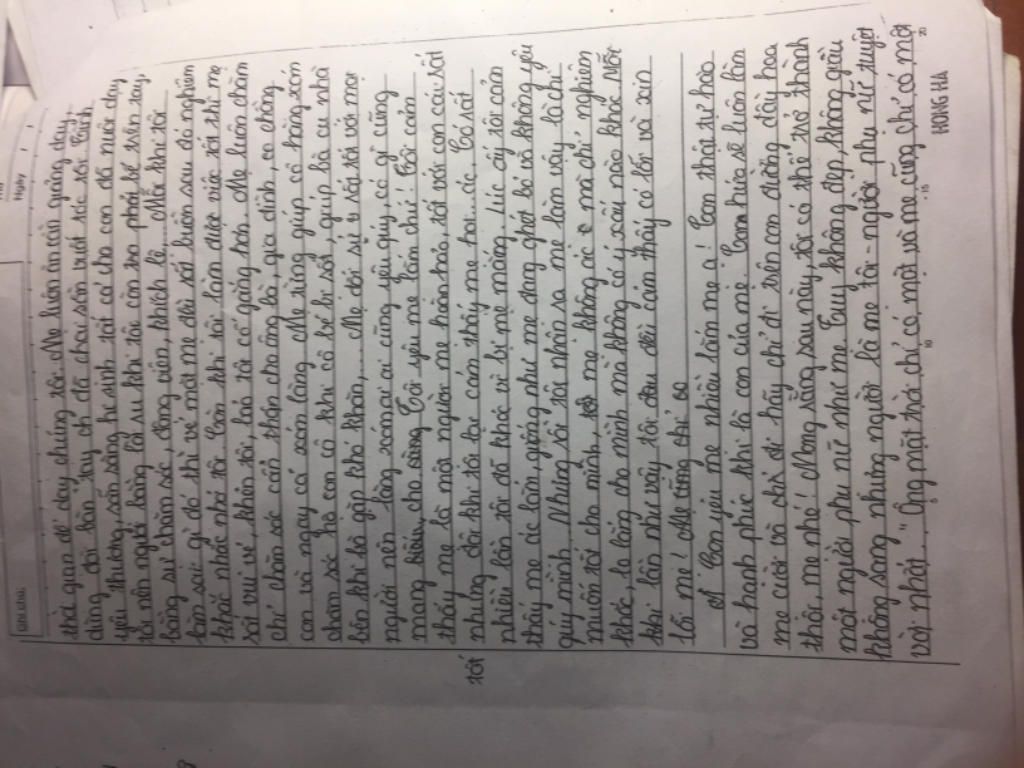 Ghi chú:
Ngày
thời gian để dạy chúng tôi. Mẹ luôn ân cần quàng dạy,
dùng đôi bàn tay ấy để chai sần vuốt tóc tôi. Bằng
yêu thương, sẵn sàng hi sinh tất cả cho con để nuôi dạy
tôi nên người bằng lời ru khi tôi còn thơ phải bế trên tay,
bằng sự chăm sóc, động viên, khích lệ,... Mỗi khi tôi
làm sai gì đó thì vẻ mặt mẹ đôi số buồn sau đó nghiêm
khắc nhắc nhở tôi. Còn khi tôi làm được việc tốt thì mẹ
rất vui vẻ, khen tôi, bảo tôi cố gắng hơn. Mẹ luôn chăm
chỉ chăm sóc cẩn thận cho ông bà, gia đình, cả chồng
con và ngay cả xóm làng. Mẹ từng giúp cô hàng xóm
chăm sóc hai con cô khi cô bé bị sốt, giúp bà cụ nhà
bên khi bà gặp khó khăn,... Mẹ đối sử y số tới với mọi
người nên làng xóm ai ai cũng yêu quý, có gì cũng
mang biếu, cho cùng. Tôi yêu mẹ lắm chứ! Tôi cảm
thấy mẹ là một người mẹ hoàn hảo, tốt với con cái số
nhưng đôi khi tôi lại cảm thấy mẹ hơi... ác. Có rất
tới
nhiều lần tôi đã khóc vì bị mẹ mắng, lúc ấy tôi cảm
thấy mẹ ác lắm, giống như mẹ đang ghét bỏ và không yêu
quý mình. Nhưng rồi tôi nhận ra mẹ làm vậy là chỉ
muốn tốt cho mình, mẹ không ác mà chỉ nghiêm
khắc, lo lắng cho mình mà không có ý xấu nào khác. Mỗi
khi lần như vậy tôi đều cảm thấy có lỗi và xin
lỗi mẹ! Mẹ cũng chỉ
Con yêu mẹ nhiều lắm mẹ ạ! Con thật tự hào
và hạnh phúc khi là con của mẹ. Con hứa sẽ luôn làm
mẹ cười và chỉ để hãy chỉ đi trên con đường đầy hoa
thôi, mẹ nhé! Mong rằng sau này, tôi có thể trở thành
một người phụ nữ như mẹ. Tuy không đẹp, không giàu
không sang nhưng người là mẹ tôi - người phụ nữ tuyệt
vời nhất. "Ông mặt trời chỉ có một và mẹ cũng chỉ có một
5
10
15
20
HONG HA